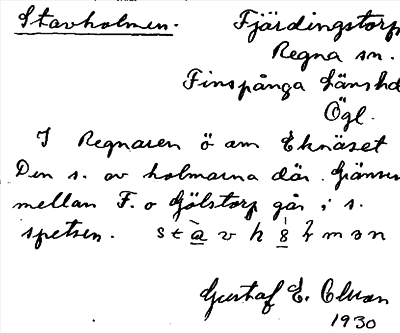 Stavholmen. Fjärdingstorp
Regna sn.
Finspånga länshd
Ögl.
I Regnaren ö om Eknäset
Den s. av holmarna där. Gränsen
mellan F. o Gölstorp går i s.
spetsen.
Gustaf E.
1930